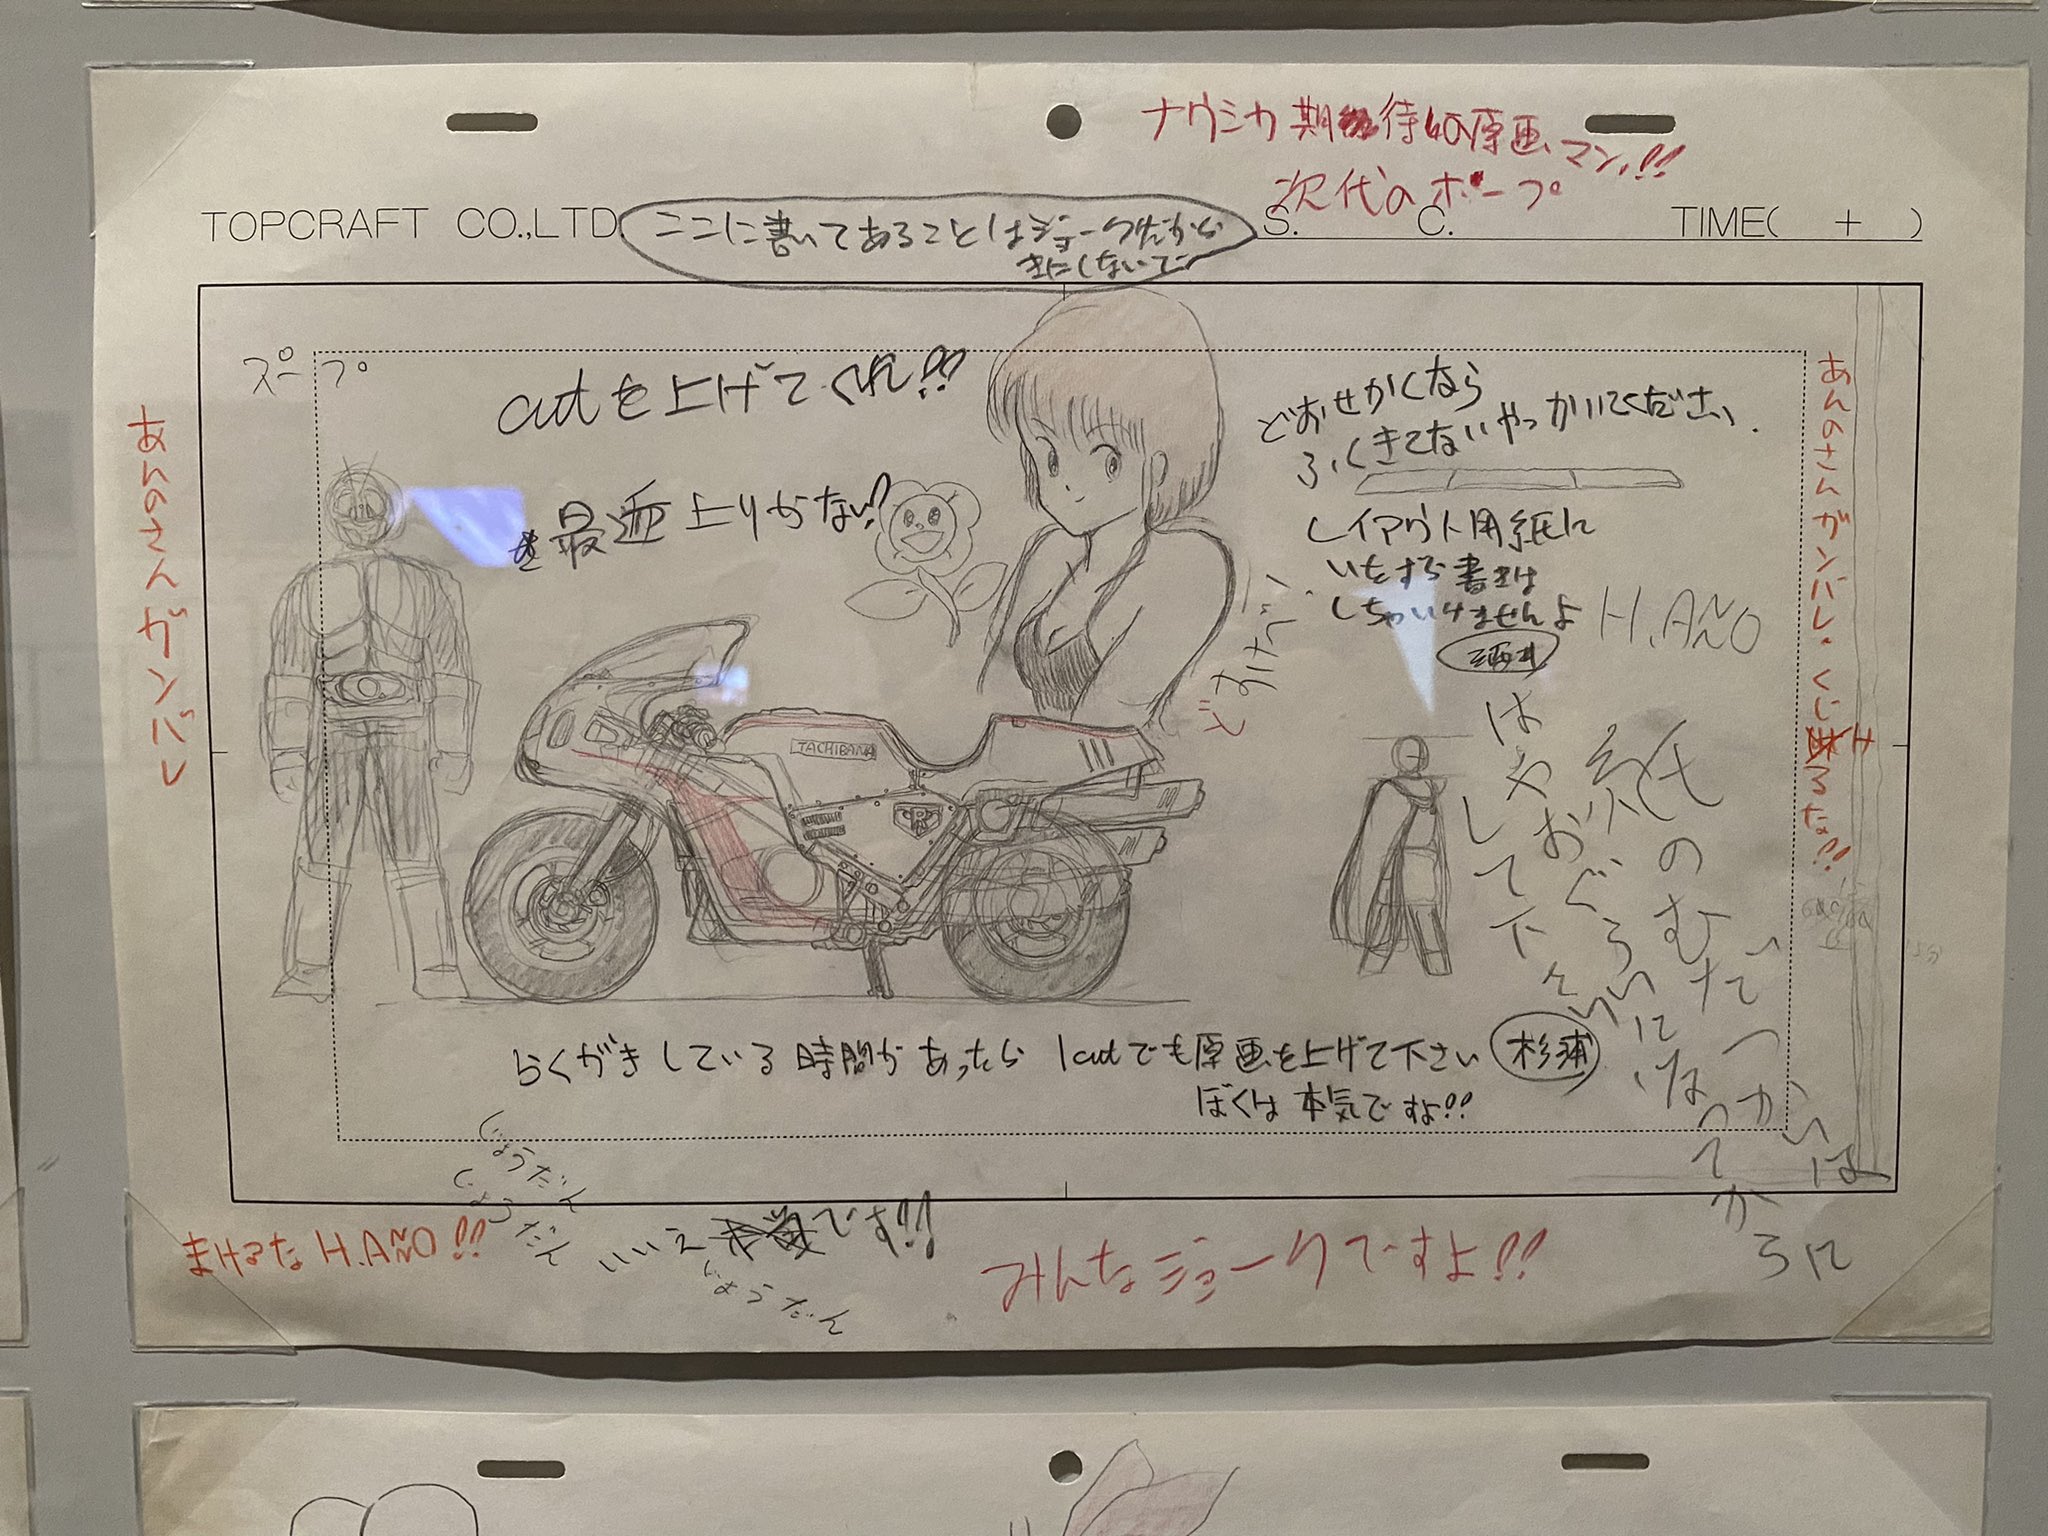 ナウシカ期待の原画マン!!
次代のホープ
TOPCRAFT CO.,LTD
ここに書いてあることはジョークだから
きにしないでー
S. C. TIME( + )
スープ
cutを上げてくれ!!
最近上りがない!?
どおせかくなら
ふくきてないやつかいてください.
レイアウト用紙に
いたずら書きは
しちゃいけませんよ
H.AÑO
あんのさんガンバレ
あんのさんガンバレ.くじけるな!!
どすけべい
TACHIBANA
紙のむだづかいは
はやおぐらいになってからに
して下さい
らくがきしている時間があったら1cutでも原画を上げて下さい 杉浦
ぼくは本気ですよ!!
じょうだん
じょうだん
まけるなH.AÑO!!
いいえ
です!!
じょうだん
みんなジョークですよ!!